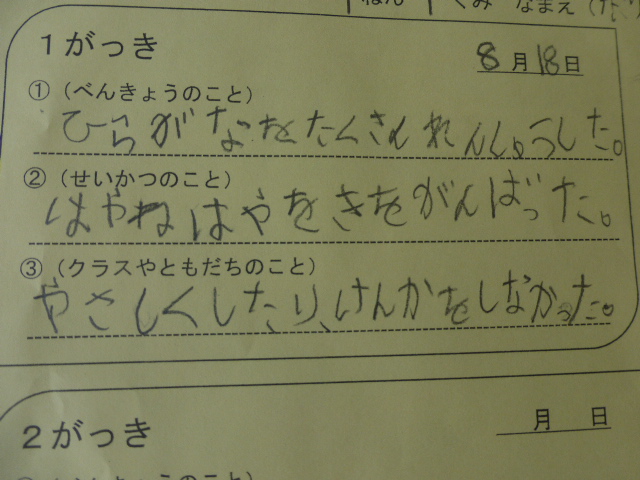 1ねん1くみ なまえ(
1がっき
8月18日
①(べんきょうのこと)
ひらがなをたくさんれんしゅうした。
②(せいかつのこと)
はやねはやをきをがんばった。
③(クラスやともだちのこと)
やさしくしたり、けんかをしなかった。
2がっき
月 日
①(べんきょうのこと)